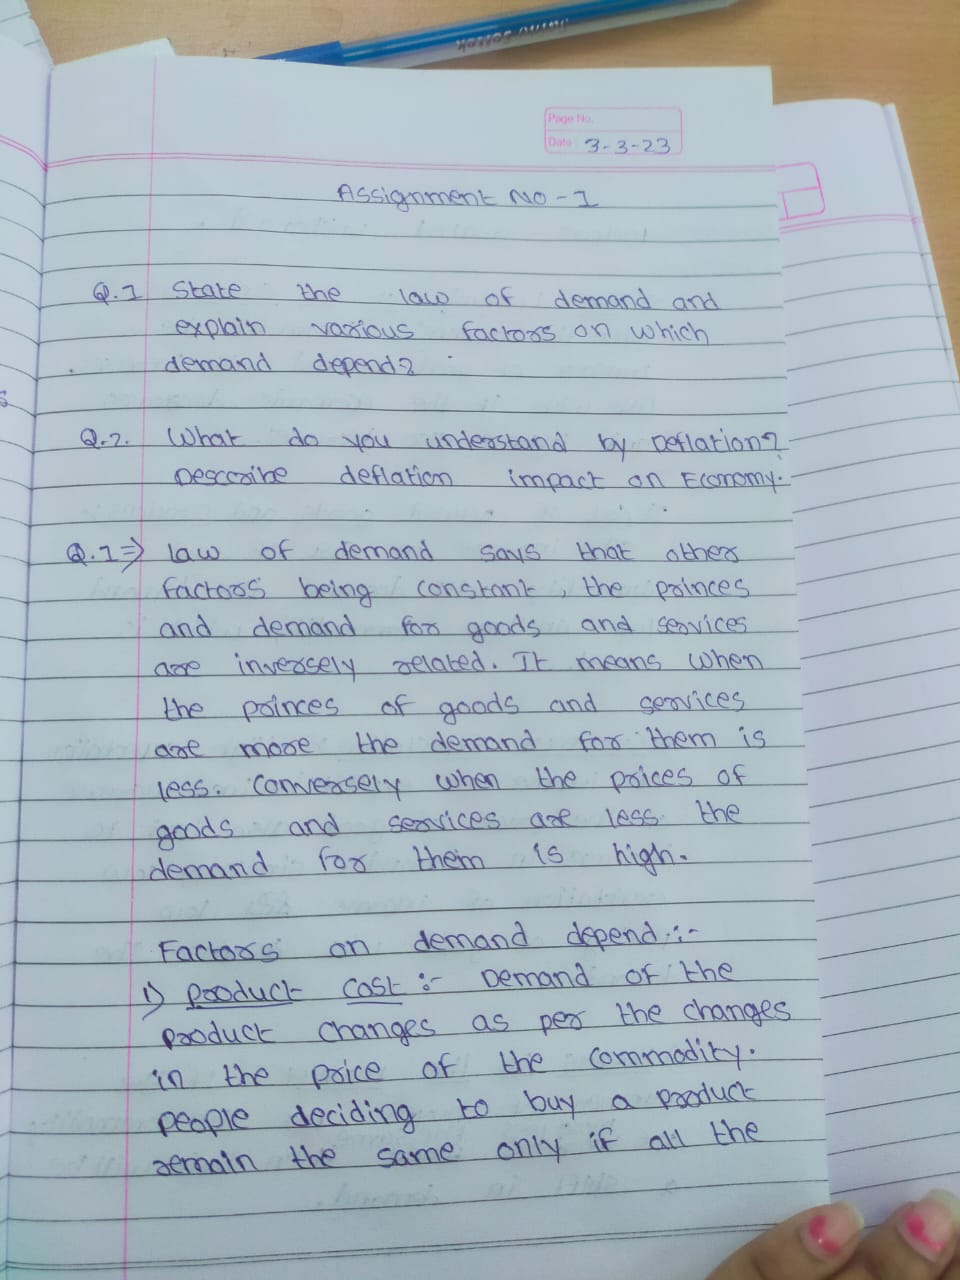 Page No.
Date 3-3-23
Assignment No - 1
Q.1 State the law of demand and
explain various factors on which
demand depend?
Q.2. What do you understand by Deflation?
Describe deflation impact on Economy.
Q.1⇒ law of demand says that other
factors being constant, the princes
and demand for goods and services
are inversely related. It means when
the princes of goods and services
are more the demand for them is
less. Conversely when the prices of
goods and services are less the
demand for them is high.
Factors on demand depend :-
1) Product Cost :- Demand of the
product changes as per the changes
in the price of the commodity.
people deciding to buy a product
remain the same only if all the